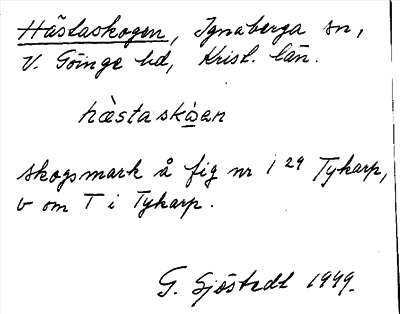 Hästaskogen, Ignaberga sn,
V. Göinge hd, Krist. län.
hæ̀stasko̱en
skogsmark å fig nr i 29 Tykarp,
v om T i Tykarp.
G. Sjöstedt 1949.